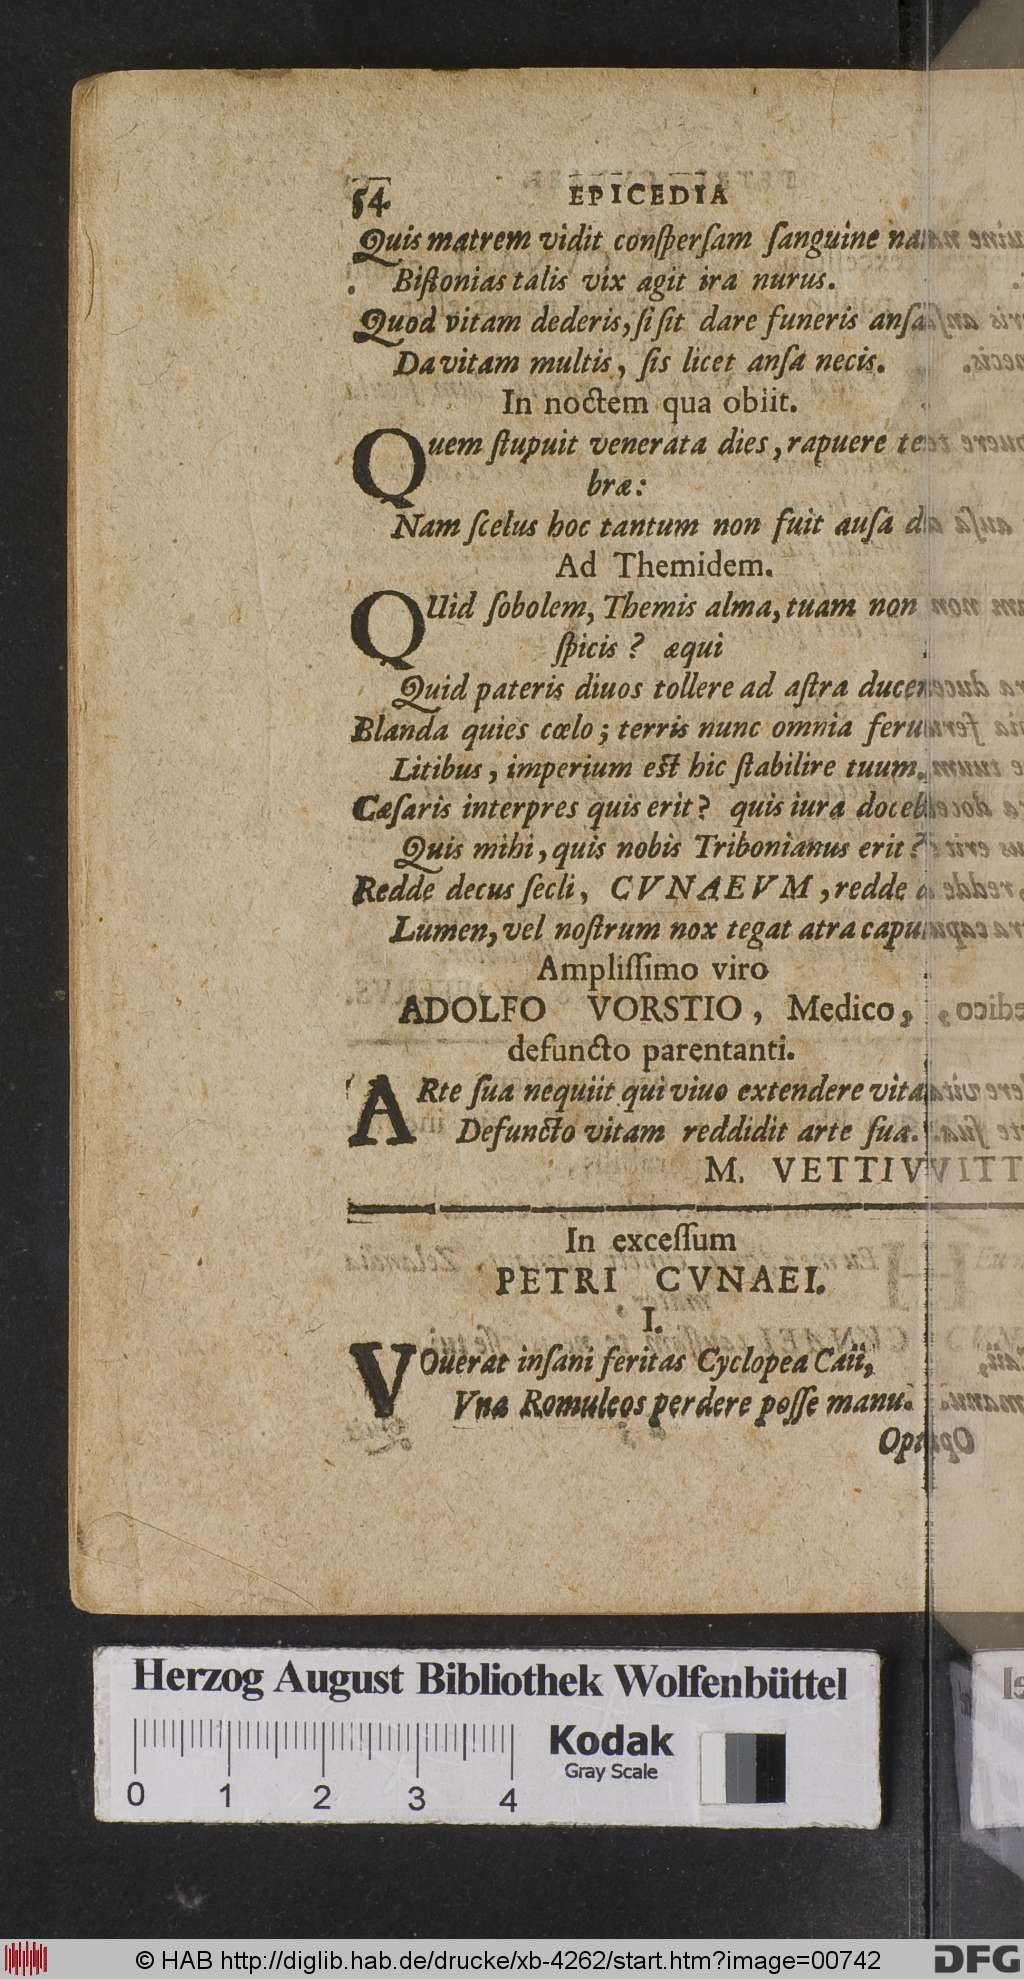 54 EPICEDIA
Quis matrem vidit conſperſam ſanguine
Biſtonias talis vix agit ira nurus.
Quod vitam dederis, ſi ſit dare funeris anſa
Da vitam multis, ſis licet anſa necis.
In noctem qua obiit.
Quem ſtupuit venerata dies, rapuere te
bræ:
Nam ſcelus hoc tantum non fuit auſa
Ad Themidem.
QUid ſobolem, Themis alma, tuam non
ſpicis? æqui
Quid pateris diuos tollere ad aſtra
Blanda quies cœlo; terris nunc omnia
Litibus, imperium eſt hic ſtabilire tuum.
Cæſaris interpres quis erit? quis iura
Quis mihi, quis nobis Tribonianus erit?
Redde decus ſecli, CVNAEVM, redde
Lumen, vel noſtrum nox tegat atra
Ampliſſimo viro
ADOLFO VORSTIO, Medico,
defuncto parentanti.
ARte ſua nequiit qui viuo extendere
Defuncto vitam reddidit arte ſua.
M. VETTIV
In exceſſum
PETRI CVNAEI.
I.
VOuerat inſani feritas Cyclopea Caii,
Vna Romuleos perdere poſſe manu.
Herzog August Bibliothek Wolfenbüttel
Kodak
Gray Scale
0 1 2 3 4
© HAB http://diglib.hab.de/drucke/xb-4262/start.htm?image=00742
DFG